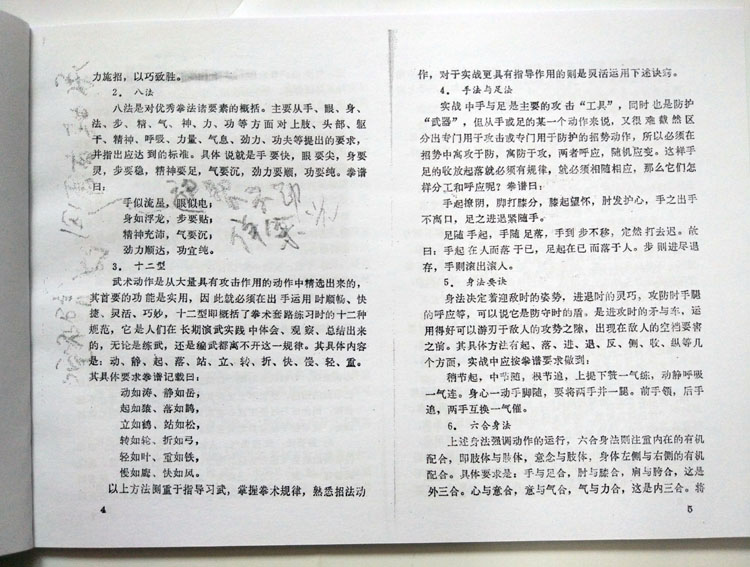 力施招，以巧致胜。
2．八法
八法是对优秀拳法诸要素的概括。主要从手、眼、身、
法、步、精、气、神、力、功等方面对上肢、头部、躯
干、精神、呼吸、力量、气息、劲力、功夫等提出的要求，
并指出应达到的标准。具体说就是手要快，眼要尖，身要
灵，步要稳，精神要足，气要沉，劲力要顺，功要纯。拳谱
曰：
手似流星，眼似电；
身如浮龙，步要贴；
精神充沛，气要沉；
劲力顺达，功宜纯。
3．十二型
武术动作是从大量具有攻击作用的动作中精选出来的，
其首要的功能是实用，因此就必须在出手运用时顺畅、快
捷、灵活、巧妙，十二型即概括了拳术套路练习时的十二种
规范，它是人们在长期演武实践中体会、观察、总结出来
的，无论是练武，还是编武都离不开这一规律。其具体内容
是：动、静、起、落、站、立、转、折、快、慢、轻、重。
其具体要求拳谱记载曰：
动如涛、静如岳，
起如猿、落如鹊，
立如鹤、站如松，
转如轮、折如弓，
轻如叶、重如铁，
慢如鹰、快如风。
以上方法侧重于指导习武，掌握拳术规律，熟悉招法动
4
作，对于实战更具有指导作用的则是灵活运用下述诀窍。
4．手法与足法
实战中手与足是主要的攻击“工具”，同时也是防护
“武器”，但从手或足的某一个动作来说，又很难截然区
分出专门用于攻击或专门用于防护的招势动作，所以必须在
招势中寓攻于防，寓防于攻，两者呼应，随机应变。这样手
足的收放起落就必须有规律，就必须相随相应，那么它们怎
样分工和呼应呢？拳谱曰：
手起撩阴，脚打膝分，膝起望怀，肘发护心，手之出手
不离口，足之进退紧随手。
足随手起，手随足落，手到步不移，定然打去迟。故
曰：手起在人而落于已，足起在已而落于人。步则进尽退
存，手则滚出滚入。
5．身法要诀
身法决定着迎敌时的姿势，进退时的灵巧，攻防时手腿
的呼应等，可以说它是防守时的盾，是进攻时的矛与车，运
用得好可以游刃于敌人的攻势之隙，出现在敌人的空裆要害
之前。其具体方法有起、落、进、退、反、侧、收、纵等几
个方面，实战中应按拳谱要求做到：
稍节起，中节随，根节追，上提下赞一气练，动静呼吸
一气连。身心一动手脚随，要将两手并一腿。前手领，后手
追，两手互换一气催。
6．六合身法
上述身法强调动作的运行，六合身法则注重内在的有机
配合，即肢体与肢体，意念与肢体，身体左侧与右侧的有机
配合。具体要求是：手与足合，肘与膝合，肩与胯合，这是
外三合。心与意合，意与气合，气与力合，这是内三合。将
5